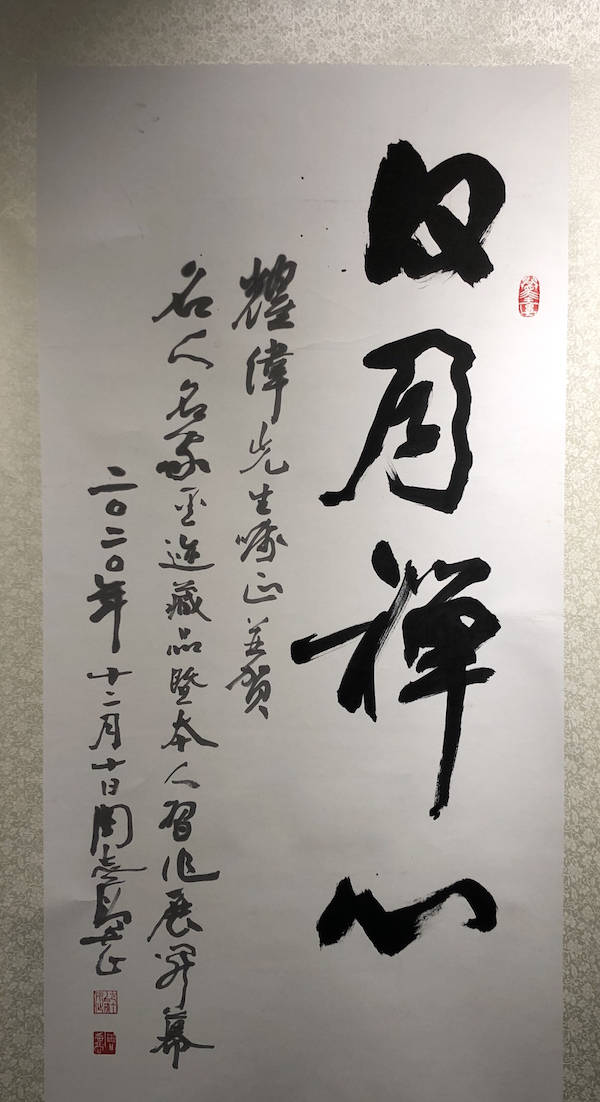 日月禪心
偉先生嘱正並賀
名人名家墨迹藏品暨本人習作展開幕
二〇二〇年十二月十日周志高